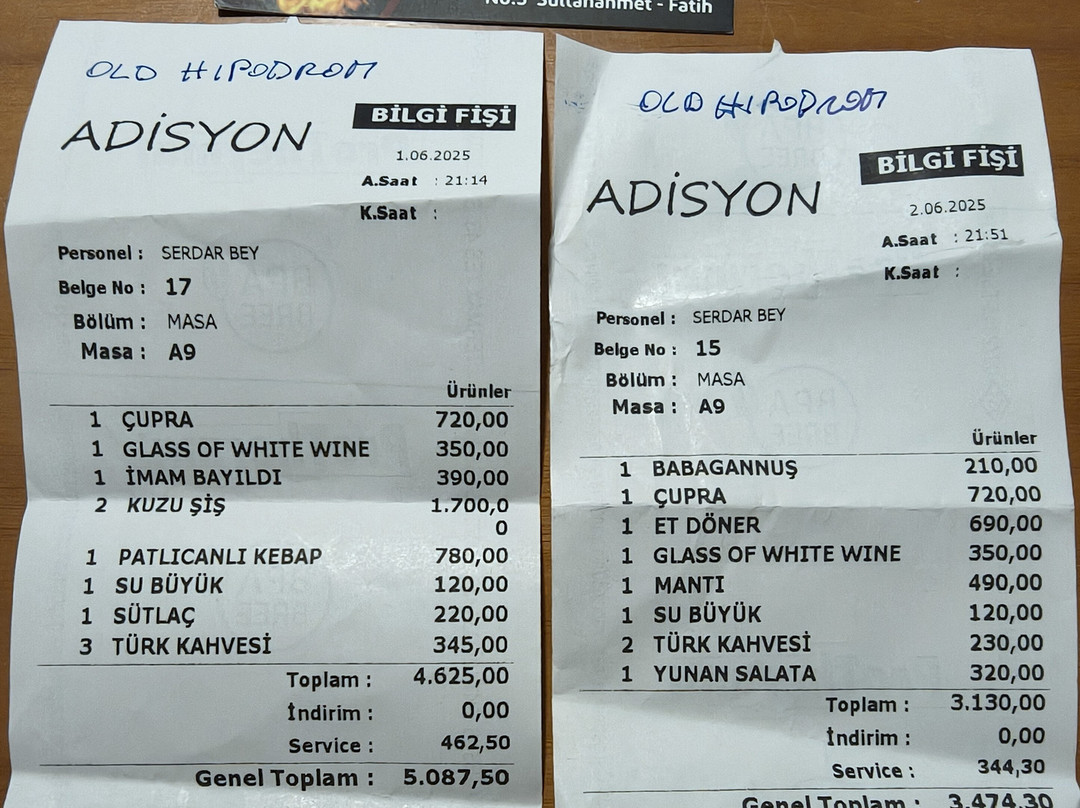 No:5 Sultanahmet - Fatih
OLD HIPODROM
ADİSYON
BİLGİ FİŞİ
1.06.2025
A.Saat : 21:14
K.Saat :
Personel : SERDAR BEY
Belge No : 17
Bölüm : MASA
Masa : A9
Ürünler
1 ÇUPRA 720,00
1 GLASS OF WHITE WINE 350,00
1 İMAM BAYILDI 390,00
2 KUZU ŞİŞ 1.700,0
0
1 PATLICANLI KEBAP 780,00
1 SU BÜYÜK 120,00
1 SÜTLAÇ 220,00
3 TÜRK KAHVESİ 345,00
Toplam : 4.625,00
İndirim : 0,00
Service : 462,50
Genel Toplam : 5.087,50
OLD HIPODROM
ADİSYON
BİLGİ FİŞİ
2.06.2025
A.Saat : 21:51
K.Saat :
Personel : SERDAR BEY
Belge No : 15
Bölüm : MASA
Masa : A9
Ürünler
1 BABAGANNUŞ 210,00
1 ÇUPRA 720,00
1 ET DÖNER 690,00
1 GLASS OF WHITE WINE 350,00
1 MANTI 490,00
1 SU BÜYÜK 120,00
2 TÜRK KAHVESİ 230,00
1 YUNAN SALATA 320,00
Toplam : 3.130,00
İndirim : 0,00
Service : 344,30
Genel Toplam : 3.474,30